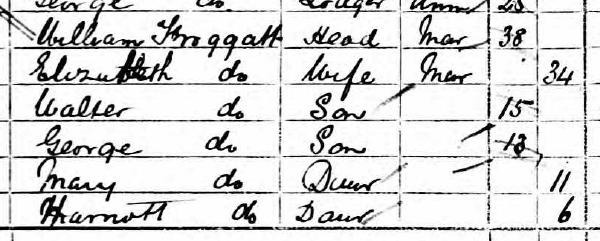 George do Lodger Unm 25
William Froggatt Head Mar 38
Elizabeth do Wife Mar 34
Walter do Son 15
George do Son 13
Mary do Daur 11
Harriott do Daur 6